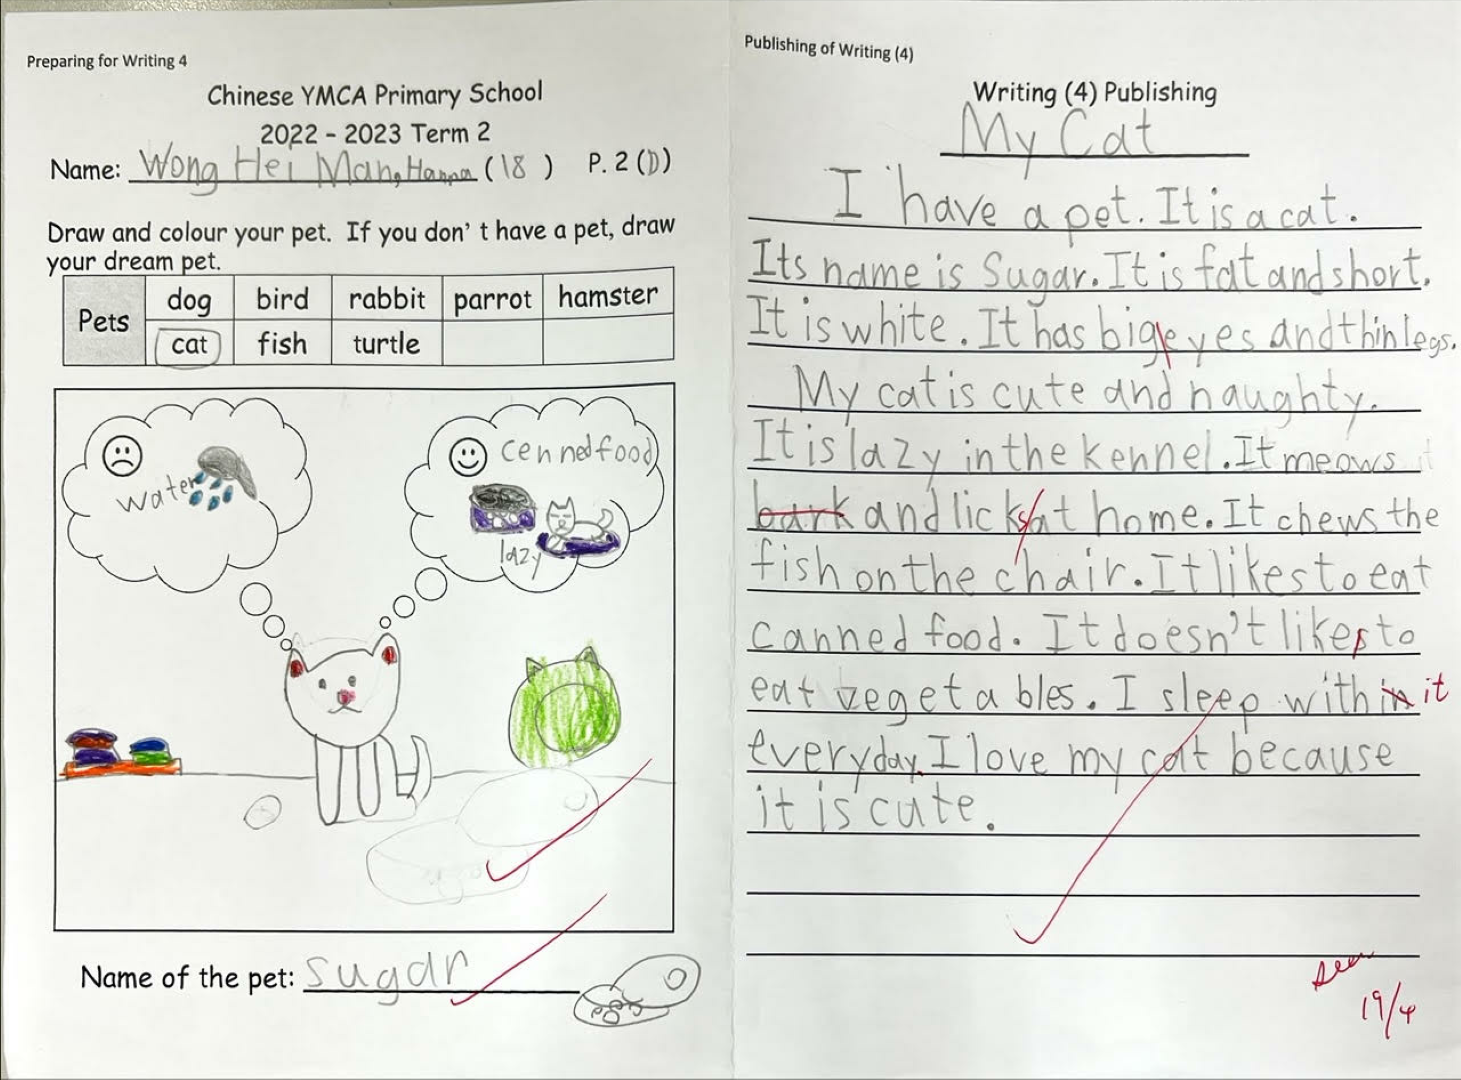 Preparing for Writing 4
Chinese YMCA Primary School
2022 - 2023 Term 2
Name: Wong Hei Man, Hanna (18) P. 2 (D)
Draw and colour your pet. If you don't have a pet, draw
your dream pet.
Pets dog bird rabbit parrot hamster
cat fish turtle
water
cenned food
lazy
Name of the pet: sugar
Publishing of Writing (4)
Writing (4) Publishing
My Cat
I have a pet. It is a cat.
Its name is Sugar. It is fat and short.
It is white. It has big eyes and thin legs.
My cat is cute and naughty.
It is lazy in the kennel. It meows
bark and licks at home. It chews the
fish on the chair. It likes to eat
canned food. It doesn't likes to
eat vegetables. I sleep with in it
everyday. I love my cat because
it is cute.
seen
19/4